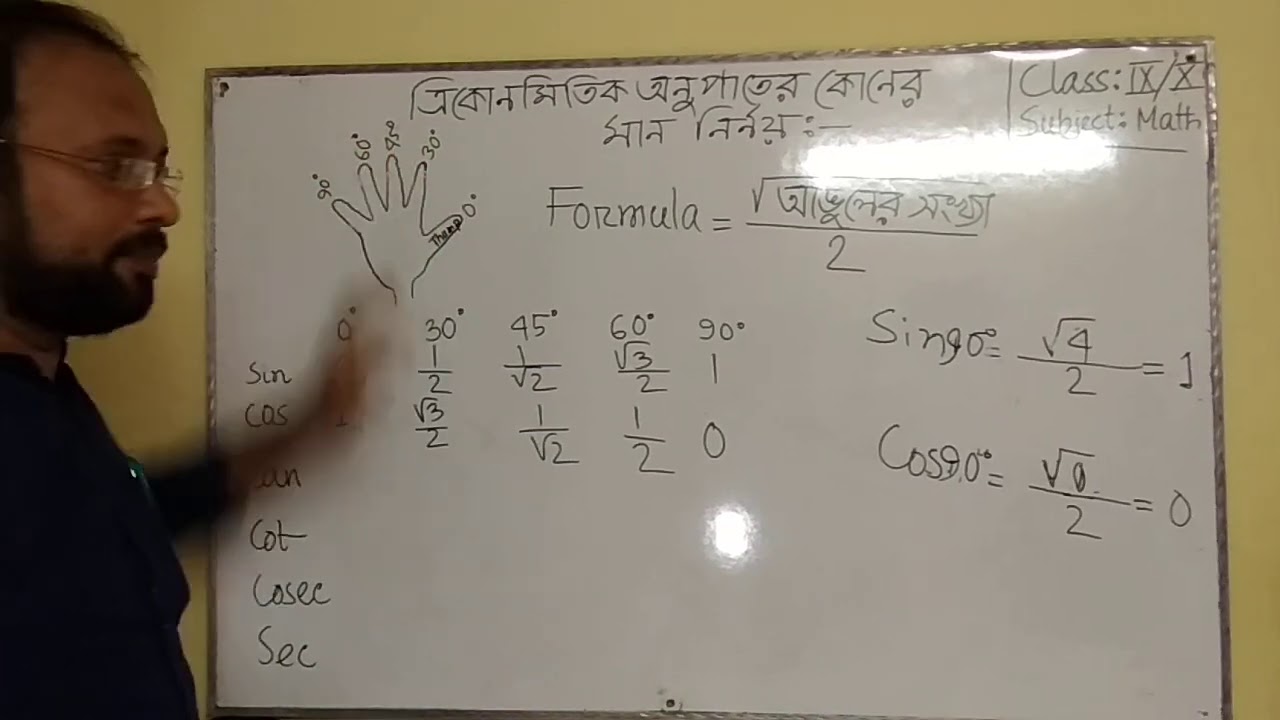 ত্রিকোনমিতিক অনুপাতের কোনের
মান নির্নয়ঃ-
Class: IX/X
Subject: Math
90° 60° 45° 30° 0°
Thamp
Formula = √আঙুলের সংখ্যা / 2
0° 30° 45° 60° 90°
Sin 1/2 1/√2 √3/2 1
Cos 1 √3/2 1/√2 1/2 0
Cot
Cosec
Sec
Sin90° = √4/2 = 1
Cos90° = √0/2 = 0